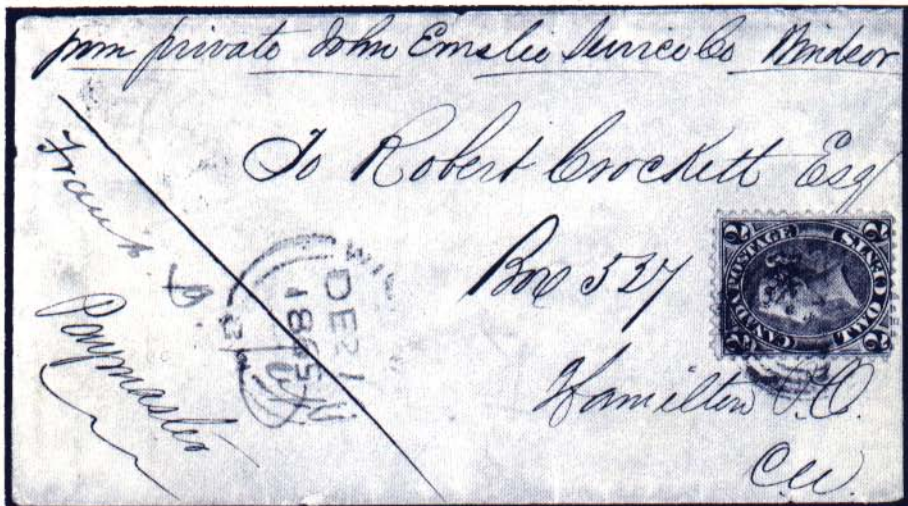 from private John Emslie Service Co Windsor
To Robert Crockett Esq
Box 527
Hamilton P.O.
CW.
Paymaster
WI
DE 21
1865
CANADA POSTAGE
TWO CENTS
2 2 2 2